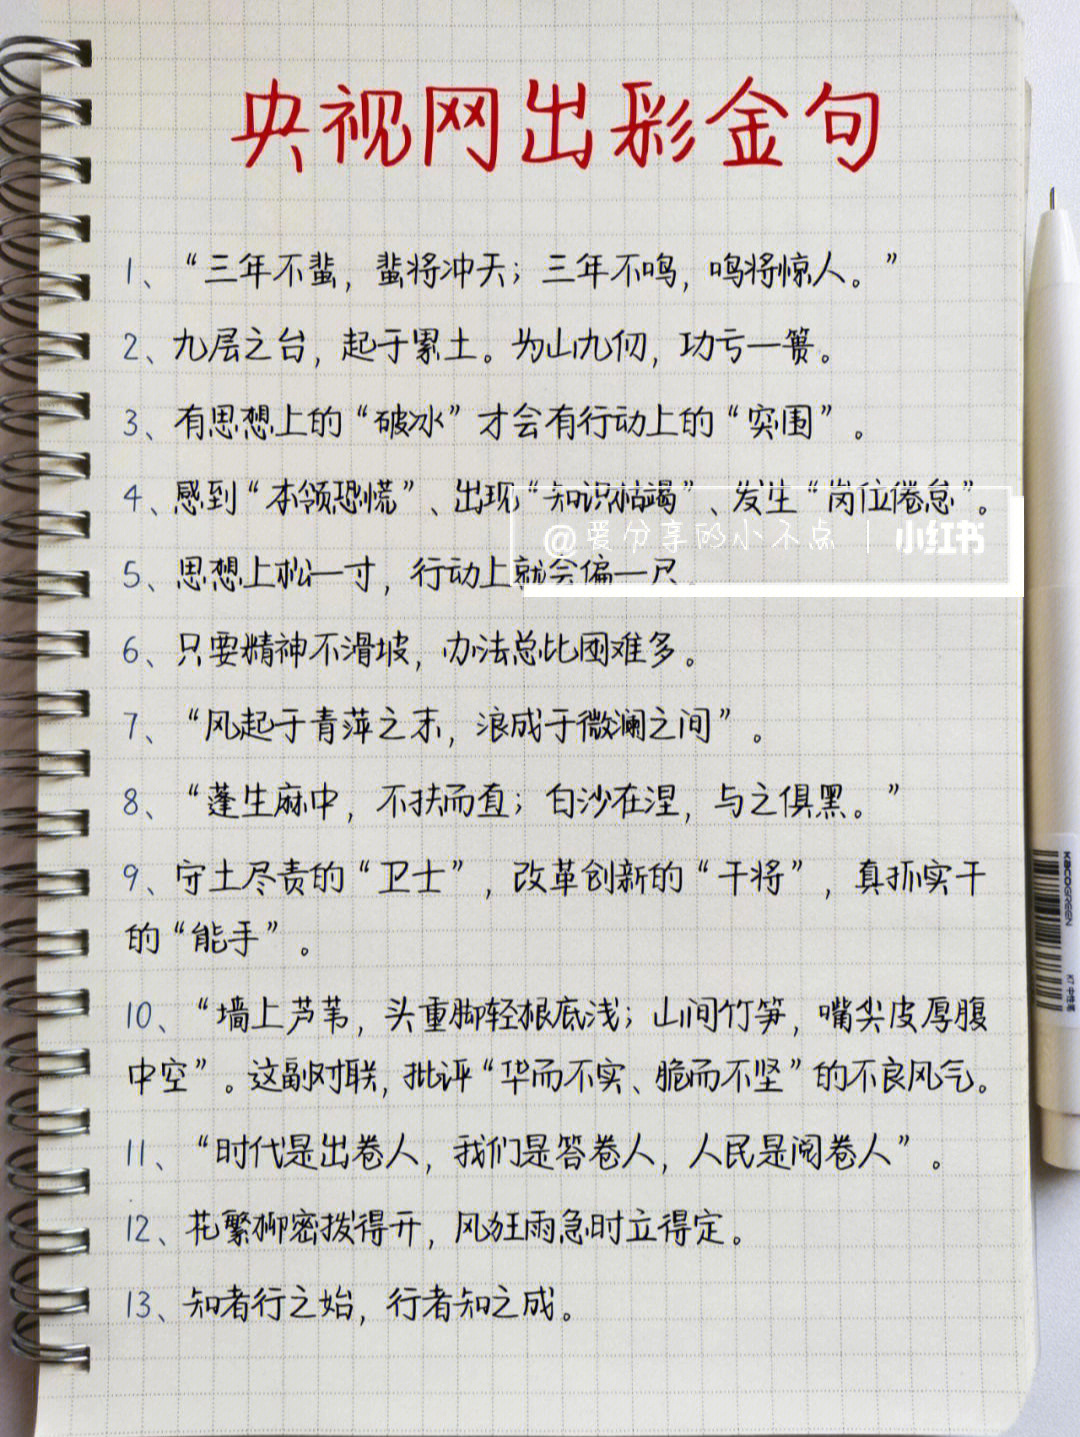 央视网出彩金句
1、“三年不蜚，蜚将冲天；三年不鸣，鸣将惊人。”
2、九层之台，起于累土。为山九仞，功亏一篑。
3、有思想上的“破冰”才会有行动上的“突围”。
4、感到“本领恐慌”、出现“知识枯竭”、发生“岗位倦怠”。
@爱分享的小不点 | 小红书
5、思想上松一寸，行动上就会偏一尺。
6、只要精神不滑坡，办法总比困难多。
7、“风起于青萍之末，浪成于微澜之间”。
8、“蓬生麻中，不扶而直；白沙在涅，与之俱黑。”
9、守土尽责的“卫士”，改革创新的“干将”，真抓实干
的“能手”。
10、“墙上芦苇，头重脚轻根底浅；山间竹笋，嘴尖皮厚腹
中空”。这副对联，批评“华而不实、脆而不坚”的不良风气。
11、“时代是出卷人，我们是答卷人，人民是阅卷人”。
12、花繁柳密拨得开，风狂雨急时立得定。
13、知者行之始，行者知之成。
KACOGREEN
K7 中性笔